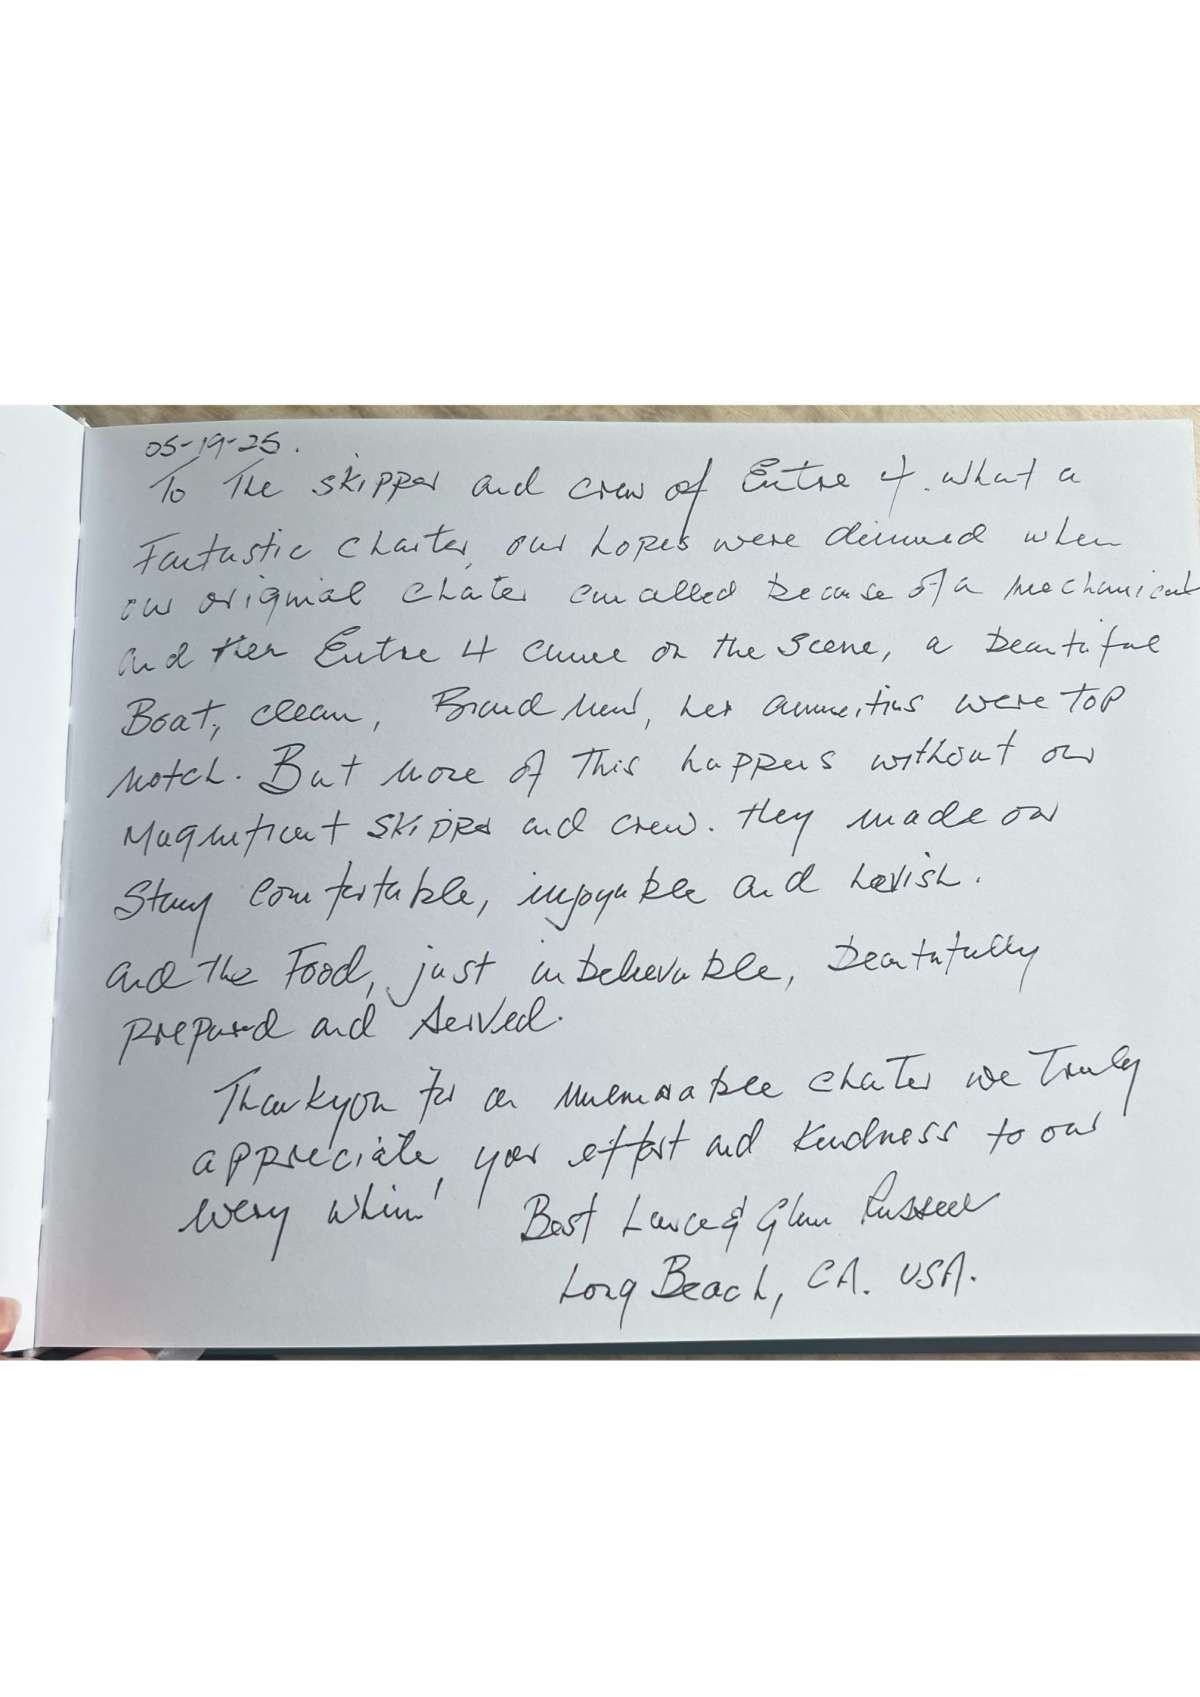 05-19-25.
To The skipper and crew of Entre 4. what a
Fantastic charter, our hopes were dimmed when
our original chater cancalled because of a mechanical
and then Entre 4 came on the scene, a beautiful
Boat, clean, Brand new, her ammeities were top
notch. But none of this happens without our
Magnificant skipper and crew. they made our
Stay comfortable, injoyable and lavish.
and the Food, just inbelievable, beautafully
prepared and served.
Thankyou for a memorable chater we Truly
appreciate your effort and Kindness to our
every whim!
Best Lance & Glenn Russell
Long Beach, CA. USA.